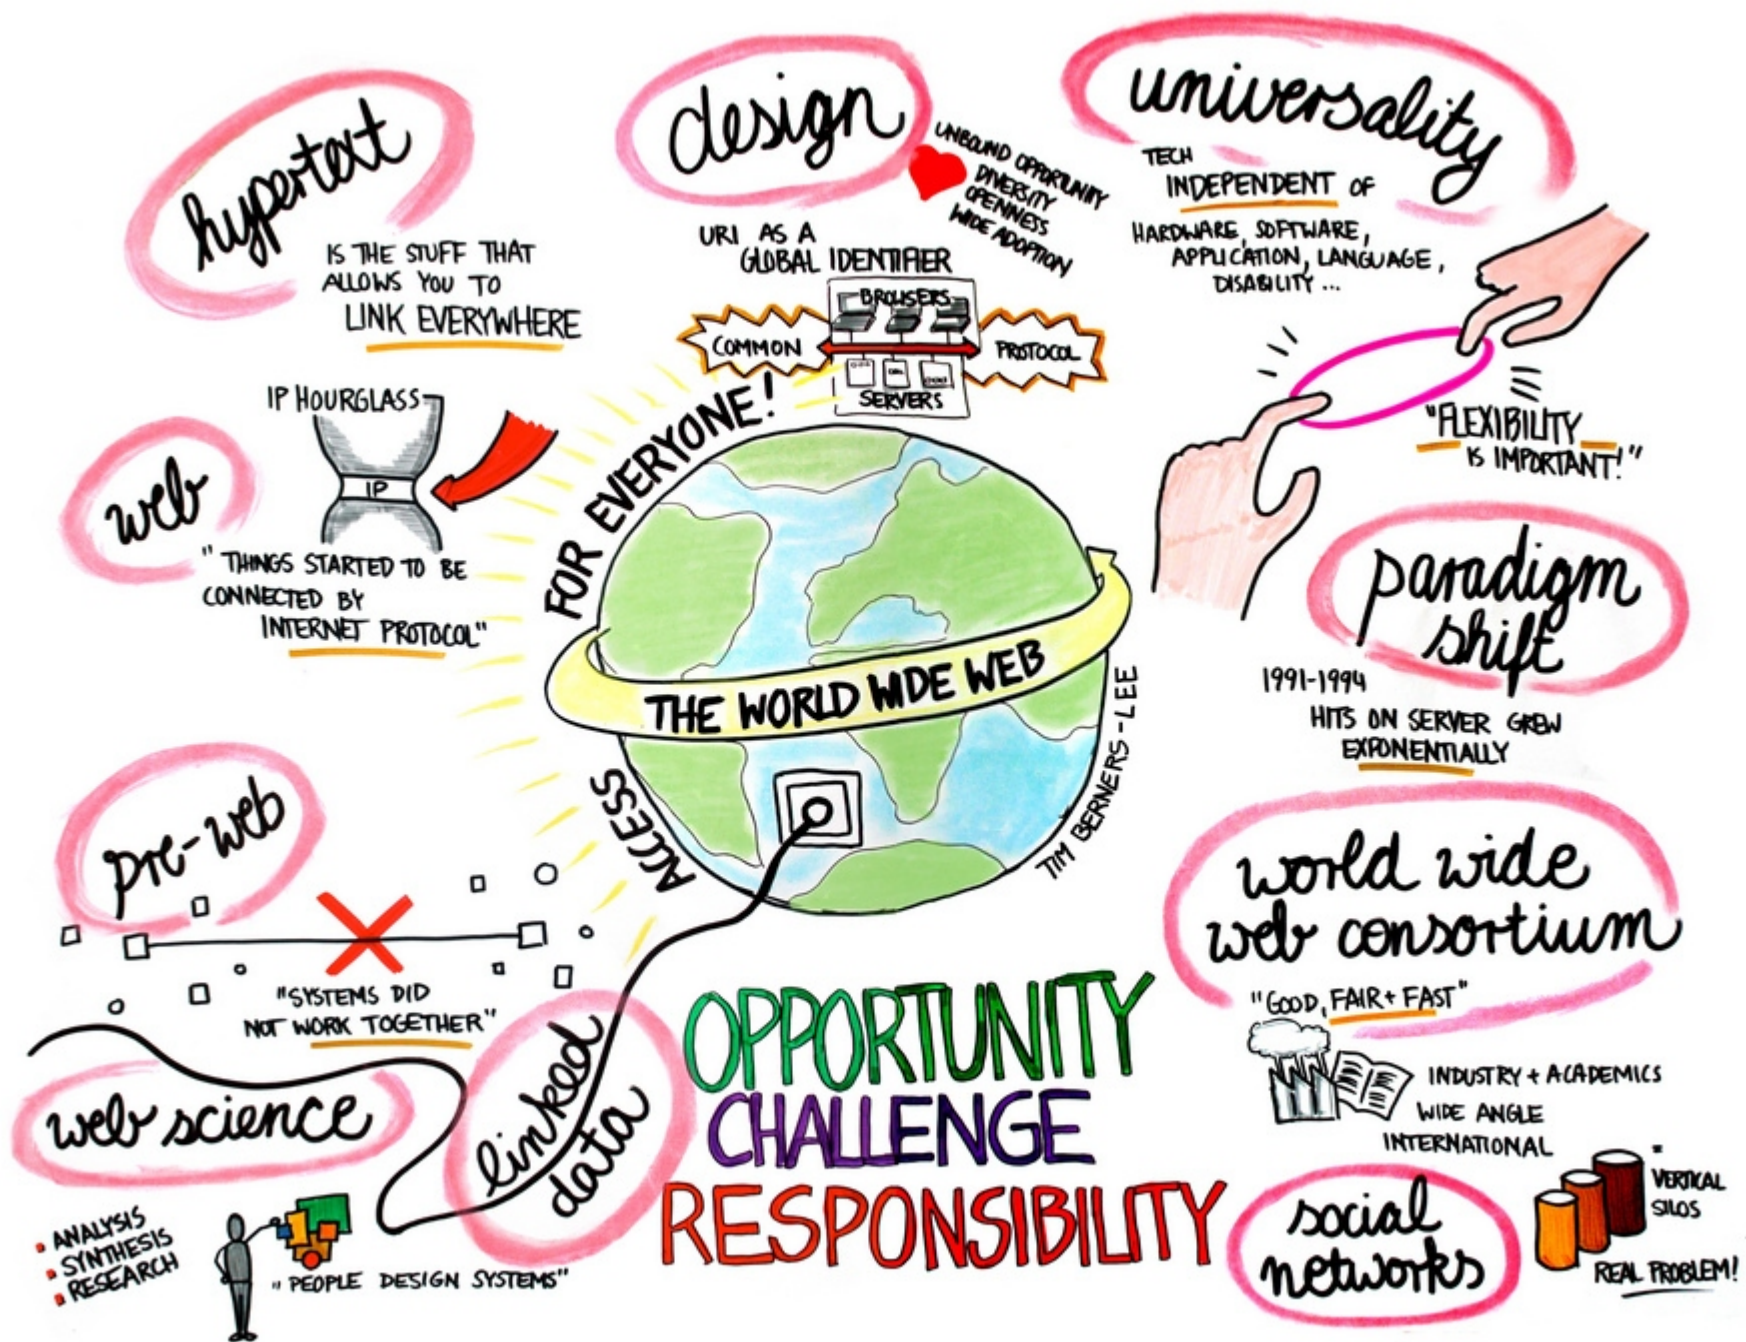 hypertext
IS THE STUFF THAT
ALLOWS YOU TO
LINK EVERYWHERE
design
UNBOUND OPPORTUNITY
DIVERSITY
OPENNESS
WIDE ADOPTION
URI AS A
GLOBAL IDENTIFIER
BROWSERS
COMMON
PROTOCOL
SERVERS
universality
TECH
INDEPENDENT OF
HARDWARE, SOFTWARE,
APPLICATION, LANGUAGE,
DISABILITY ...
"FLEXIBILITY
IS IMPORTANT!"
IP HOURGLASS
IP
web
"THINGS STARTED TO BE
CONNECTED BY
INTERNET PROTOCOL"
FOR EVERYONE!
THE WORLD WIDE WEB
ACCESS
TIM BERNERS-LEE
paradigm
shift
1991-1994
HITS ON SERVER GREW
EXPONENTIALLY
pre-web
"SYSTEMS DID
NOT WORK TOGETHER"
world wide
web consortium
"GOOD, FAIR + FAST"
INDUSTRY + ACADEMICS
WIDE ANGLE
INTERNATIONAL
web science
ANALYSIS
SYNTHESIS
RESEARCH
"PEOPLE DESIGN SYSTEMS"
linked
data
OPPORTUNITY
CHALLENGE
RESPONSIBILITY
social
networks
=
VERTICAL
SILOS
REAL PROBLEM!